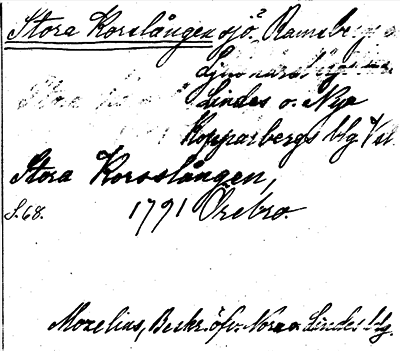 Stora Korslången sjö Ramsbergs o
Ljusnarsbergs
Lindes o. Nya
Kopparbergs blg Vsl.
Stora Korsslången,
S.68. 1791 Örebro.
Mozelius, Beskr. öfv. Nora o. Lindes blg.